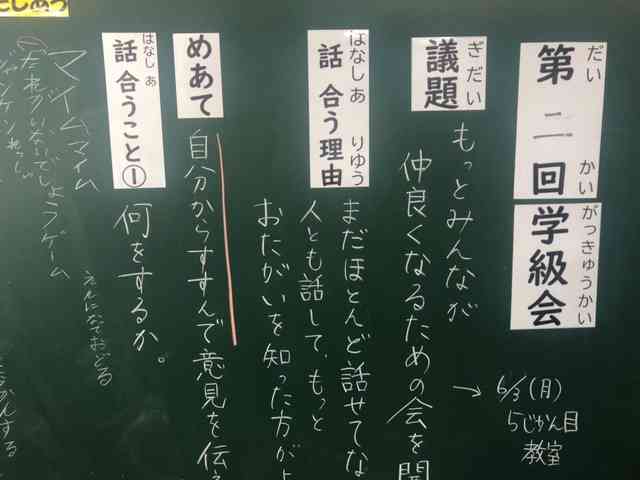 だい かい
第二回
がっきゅうかい
学級会
6/3(月)
5じかん目
教室
ぎだい
議題
もっとみんなが
仲良くなるための会を開
はなしあ りゆう
話合う理由
まだほとんど話せてな
人とも話して、もっと
おたがいを知った方が
めあて
自分からすすんで意見を伝
はなしあ
話合うこと①
何をするか。
マイムマイム
えんになっておどる
ゲーム